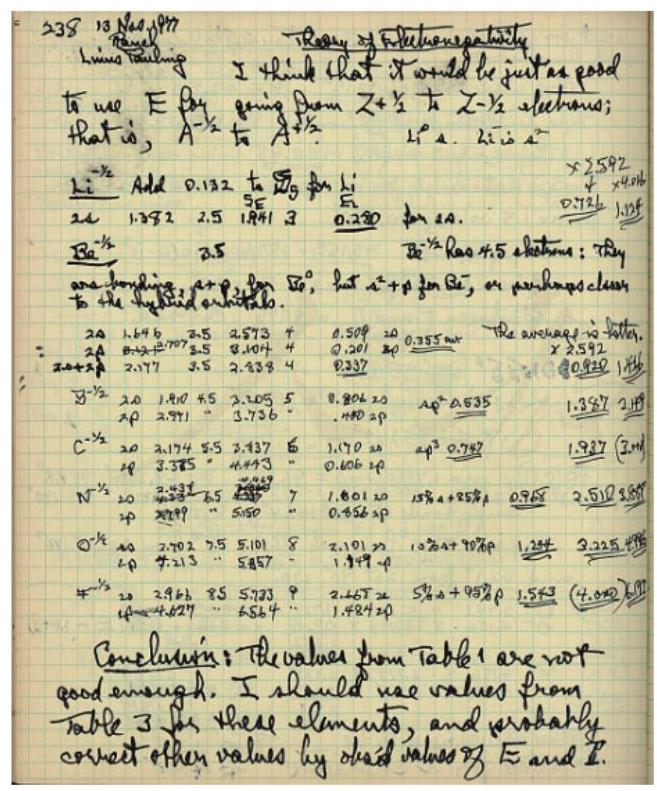 238 13 Nov 1977
Ranch Theory of Electronegativity
Linus Pauling I think that it would be just as good
to use E for going from Z+½ to Z-½ electrons;
that is, A^-½ to A^+½. Li° s. Li is s²
Li^-½ Add 0.132 to for Li × 2.592
2s 1.382 2.5 1.941 3 0.280 for 2s. 0.726 1.124
Be^-½ 3.5 Be^-½ has 4.5 electrons: They
are bonding, s+p, for Be°, but s²+p for Be⁻, or perhaps closer
to the hybrid orbitals.
2s 1.646 3.5 2.573 4 0.509 2s 0.355 The average is better.
3.5 3.104 4 0.201 2p × 2.592
2s+2p 2.177 3.5 2.838 4 0.337 0.920
B^-½ 2s 1.910 4.5 3.205 5 0.806 2s sp² 0.535 1.387
2p 2.971 " 3.736 " 2p
C^-½ 2s 2.174 5.5 3.837 6 1.170 2s sp³ 0.747 1.937
2p 3.385 " 4.443 " 0.606 2p
N^-½ 2s 2.434 6.5 7 1.601 2s 15% s + 85% p 0.968 2.510
2p " 5.150 " 0.856 2p
O^-½ 2s 2.702 7.5 5.101 8 2.101 2s 10% s + 90% p 1.244 3.225
2p 4.213 " 5.857 " 1.149 2p
F^-½ 2s 2.966 8.5 5.733 9 2s 5% s + 95% p 1.543
2p 4.627 " 6.564 " 1.484 2p
Conclusion: The values from Table 1 are not
good enough. I should use values from
Table 3 for these elements, and probably
correct other values by obs'd values of E and I.